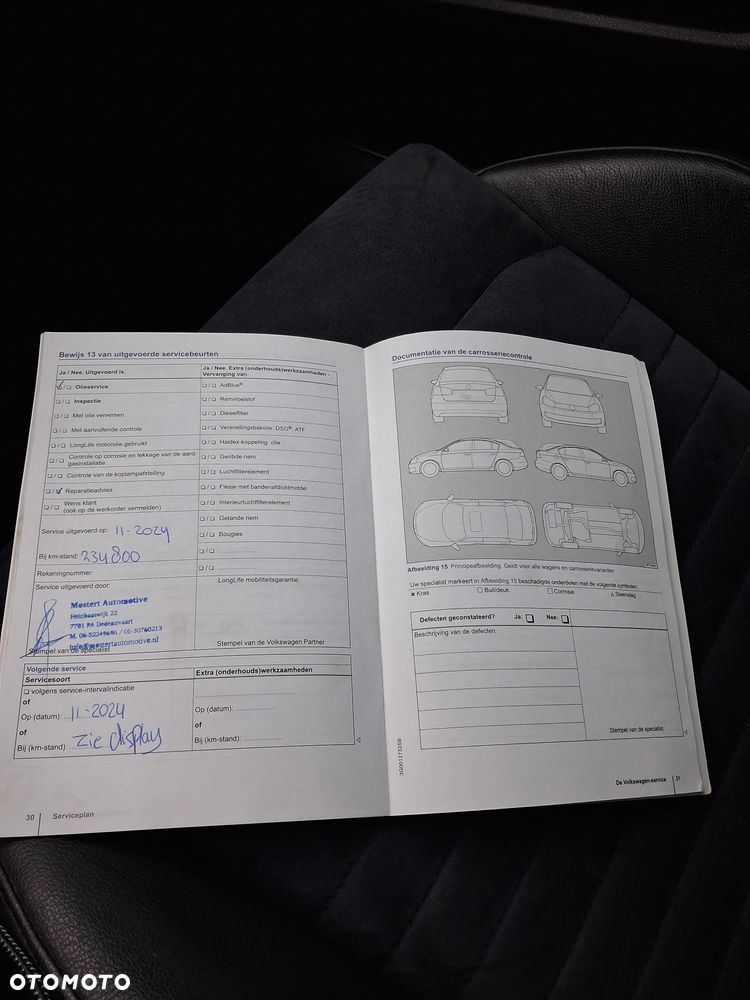 Bewijs 13 van uitgevoerde servicebeurten
Ja / Nee. Uitgevoerd is:
❏ / ❏ Olieservice
❏ / ❏ Inspectie
❏ / ❏ Met olie verversen
❏ / ❏ Met aanvullende controle
❏ / ❏ LongLife motorolie gebruikt
❏ / ❏ Controle op corrosie en lekkage van de aard-
gasinstallatie
❏ / ❏ Controle van de koplampafstelling
❏ / ❏ Reparatieadvies
❏ / ❏ Wens klant
(ook op de werkorder vermelden)
Service uitgevoerd op: 11-2024
Bij km-stand: 234800
Rekeningnummer:
Service uitgevoerd door:
Mostert Automotive
Heinbaarwijk 22
7701 PA Dedemsvaart
M. 06-52249696 / 06-30760213
info@mostertautomotive.nl
Stempel van de specialist
Ja / Nee. Extra (onderhouds)werkzaamheden -
Vervanging van:
❏ / ❏ AdBlue®
❏ / ❏ Remvloeistof
❏ / ❏ Dieselfilter
❏ / ❏ Versnellingsbakolie: DSG®, ATF
❏ / ❏ Haldex-koppeling: olie
❏ / ❏ Geribde riem
❏ / ❏ Luchtfilterelement
❏ / ❏ Flesje met bandenafdichtmiddel
❏ / ❏ Interieurluchtfilterelement
❏ / ❏ Getande riem
❏ / ❏ Bougies
❏ / ❏
❏ / ❏
LongLife mobiliteitsgarantie:
Stempel van de Volkswagen Partner
Volgende service
Servicesoort
❏ volgens service-intervalindicatie
of
Op (datum): 11-2024
of
Bij (km-stand): zie display
Extra (onderhouds)werkzaamheden
Op (datum):
of
Bij (km-stand):
30 Serviceplan
Documentatie van de carrosseriecontrole
Afbeelding 15 Principeafbeelding. Geldt voor alle wagens en carrosserievarianten
Uw specialist markeert in Afbeelding 15 beschadigde onderdelen met de volgende symbolen
× Kras ○ Buil/deuk □ Corrosie △ Steenslag
Defecten geconstateerd? Ja: ❏ Nee: ❏
Beschrijving van de defecten:
Stempel van de specialist
3G0012732SB
De Volkswagen-service 31
OTOMOTO